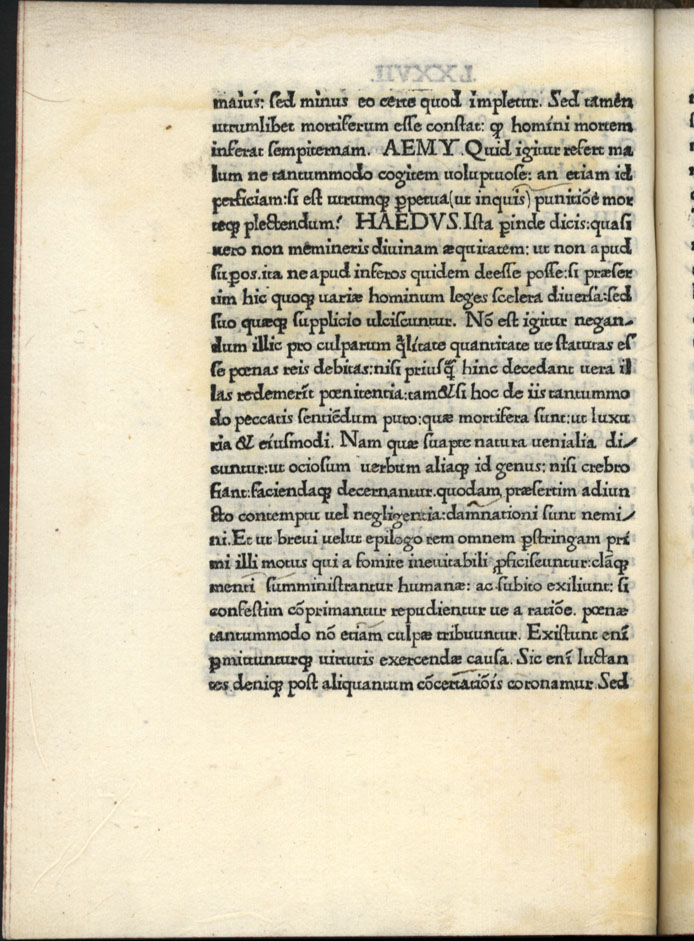 maius: sed minus eo certe quod impletur. Sed tamen
utrumlibet mortiferum esse constat: ꝙ homini mortem
inferat sempiternam. AEMY. Quid igitur refert ma
lum ne tantummodo cogitem uoluptuose: an etiam id
perficiam: si est utrumqꝫ ꝑpetua (ut inquis) punitiõe mor
teqꝫ plectendum? HAEDVS. Ista ꝑinde dicis: quasi
uero non memineris diuinam æquitatem: ut non apud
supos. ita ne apud inferos quidem deesse posse: si præser
tim hic quoqꝫ uariæ hominum leges scelera diuersa: sed
suo quæqꝫ supplicio ulciscuntur. Nõ est igitur negan-
dum illic pro culparum q̃litate quantitate ue statutas es
se pœnas reis debitas: nisi priusq̃ hinc decedant uera il
las redemerĩt pœnitentia: tam&si hoc de iis tantummo
do peccatis sentiẽdum puto: quæ mortifera sunt: ut luxu
ria & eiusmodi. Nam quæ suapte natura uenialia di-
cuntur: ut ociosum uerbum aliaqꝫ id genus: nisi crebro
fiant: faciendaqꝫ decernantur. quodam præsertim adiun
cto contemptu uel negligentia: damnationi sunt nemi-
ni. Et ut breui uelut epilogo rem omnem ꝑstringam pri
mi illi motus qui a fomite ineuitabili ꝓficiscuntur: clãqꝫ
menti sumministrantur humanæ: ac subito exiliunt: si
confestim cõprimantur repudientur ue a ratiõe. pœnæ
tantummodo nõ etiam culpæ tribuuntur. Existunt enĩ
ꝑmittunturqꝫ uirtutis exercendæ causa. Sic enĩ luctan
tes deniqꝫ post aliquantum cõcertatiõis coronamur. Sed